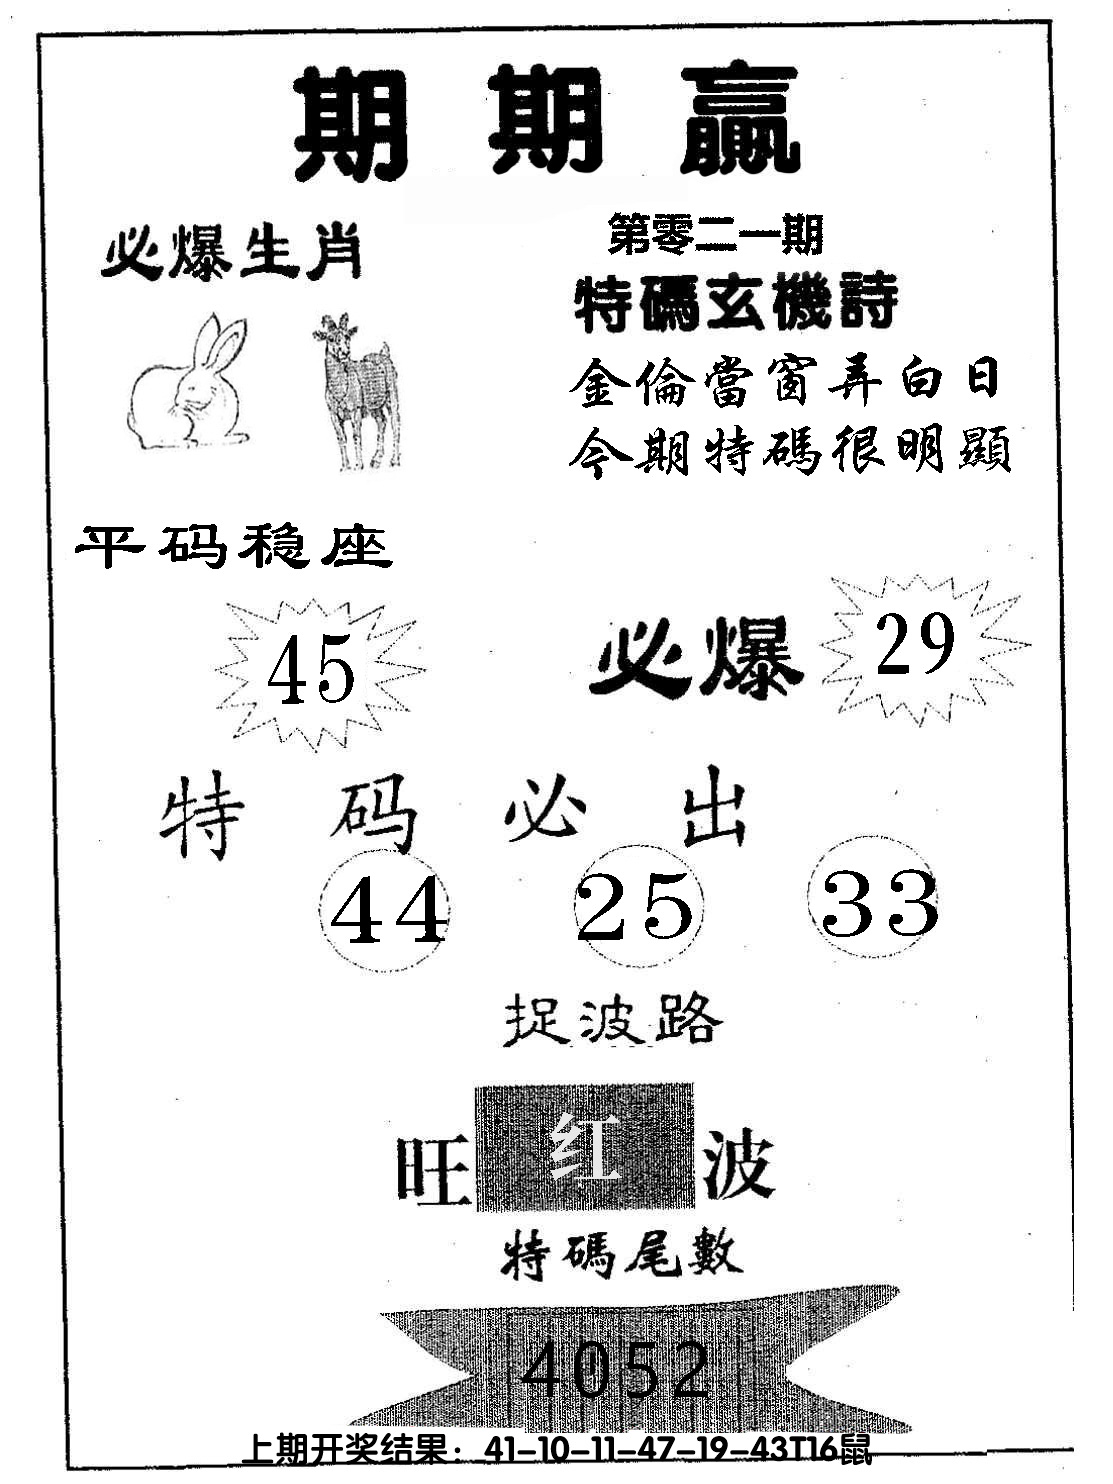 期期赢
必爆生肖
第零二一期
特碼玄機詩
金倫當窗弄白日
今期特碼很明顯
平码稳座
45
必爆 29
特码必出
44 25 33
捉波路
旺红波
特碼尾數
4052
上期开奖结果：41-10-11-47-19-43T16鼠